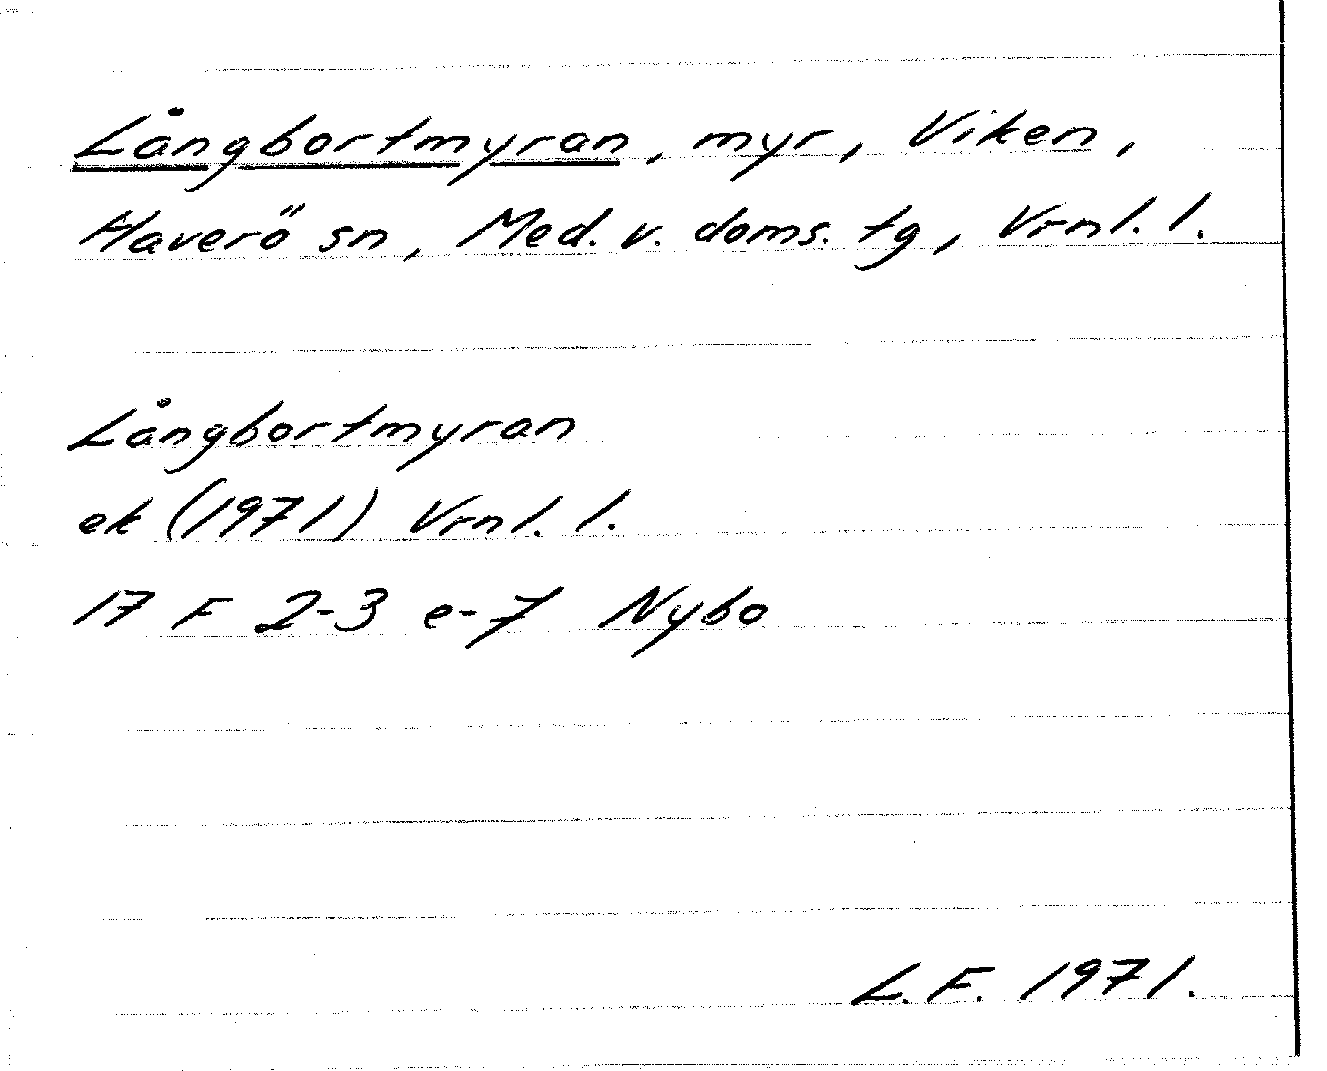 Långbortmyran, myr, Viken,
Haverö sn, Med. v. doms. tg, Vrnl. l.
Långbortmyran
ek (1971) Vrnl. l.
17 F 2-3 e-f Nybo
L. F. 1971.